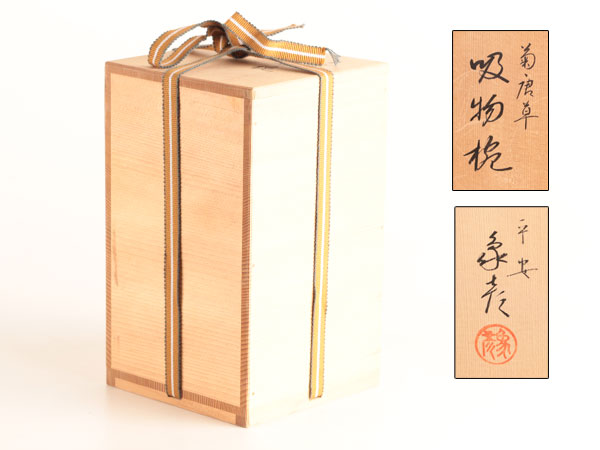 菊唐草
吸物椀
平安
象彦
象彦